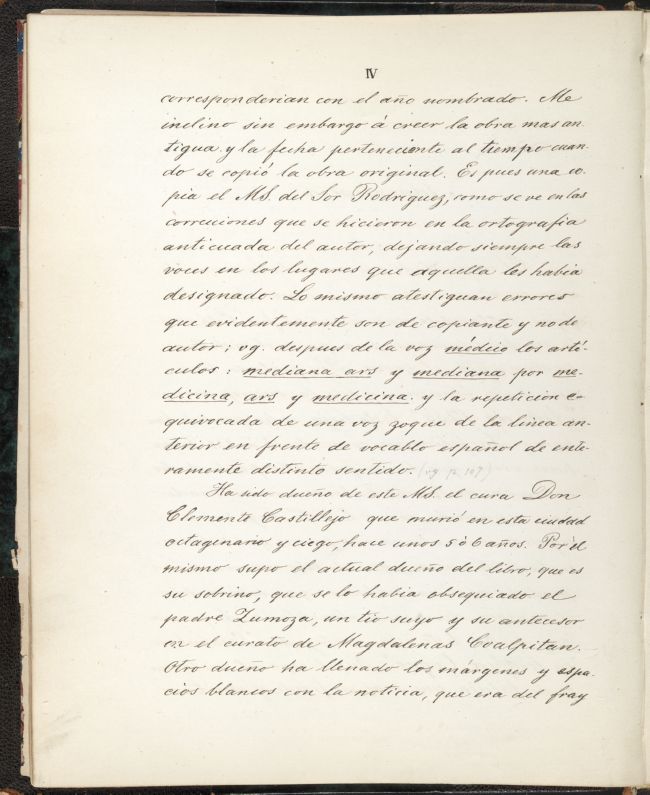 IV
corresponderian con el año nombrado. Me
inclino sin embargo á creer la obra mas an-
tigua y la fecha perteneciente al tiempo cuan-
do se copió la obra original. Es pues una co-
pia el MS. del Sor Rodriguez, como se ve en las
correcciones que se hicieron en la ortografia
anticuada del autor, dejando siempre las
voces en los lugares que aquella les habia
designado. Lo mismo atestiguan errores
que evidentemente son de copiante y no de
autor; vg. despues de la voz médico los artí-
culos: mediana ars y mediana por me-
dicina, ars y medicina. y la repeticion e-
quivocada de una voz zoque de la linea an-
terior en frente de vocablo español de ente-
ramente distinto sentido. (vg p. 107)
Ha sido dueño de este MS. el cura Don
Clemente Castillejo que murió en esta ciudad
octagenario y ciego, hace unos 5 ó 6 años. Por él
mismo supo el actual dueño del libro, que es
su sobrino, que se lo habia obsequiado el
padre Zumoza, un tio suyo y su antecesor
en el curato de Magdalenas Coalpitan.
Otro dueño ha llenado los márgenes y espa-
cios blancos con la noticia, que era del fray